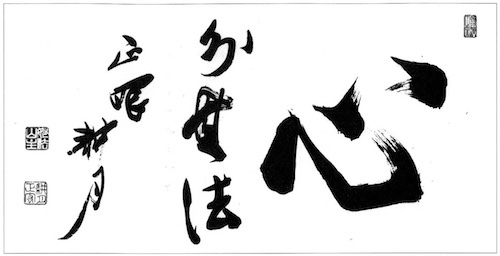 心
外無法
正眼
耕月